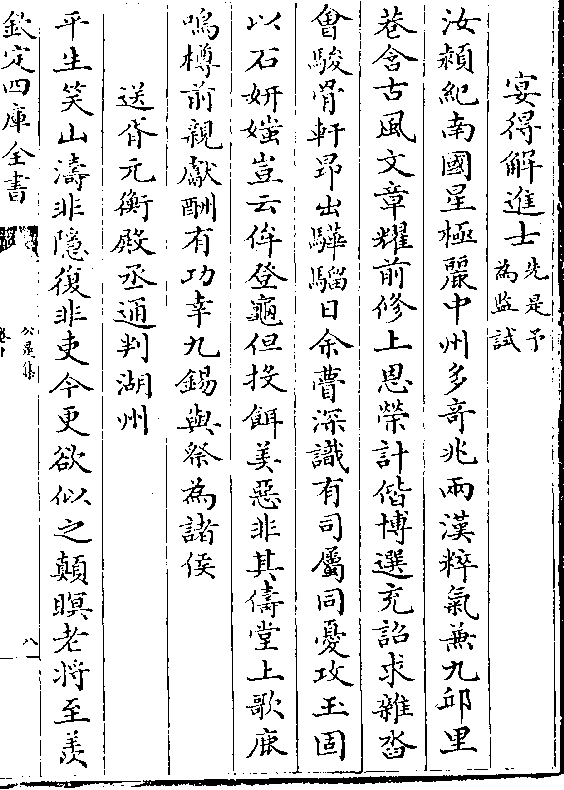 宴得解進士先是予為監試
汝頴紀南國星極麗中州多竒兆兩漢粹氣兼九邱里
巷含古風文章耀前修上恩榮計偕博選充詔求雜沓
㑹駿骨軒昻出驊騮日余曹深識有司屬同憂攻玉固
以石妍媸豈云侔登龜但投餌美惡非其儔堂上歌鹿
鳴樽前親獻酬有功幸九錫與祭為諸侯
送胥元衡殿丞通判湖州
平生笑山濤非隱復非吏今更欲似之顛暝老将至羡
欽定四庫全書
公是集
八